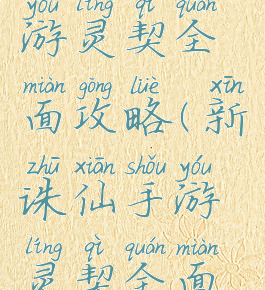 yóu líng qì quán
游灵契全
miàn gōng lüè xīn
面攻略(新
zhū xiān shǒu yóu
诛仙手游
líng qì quán miàn
灵契全面